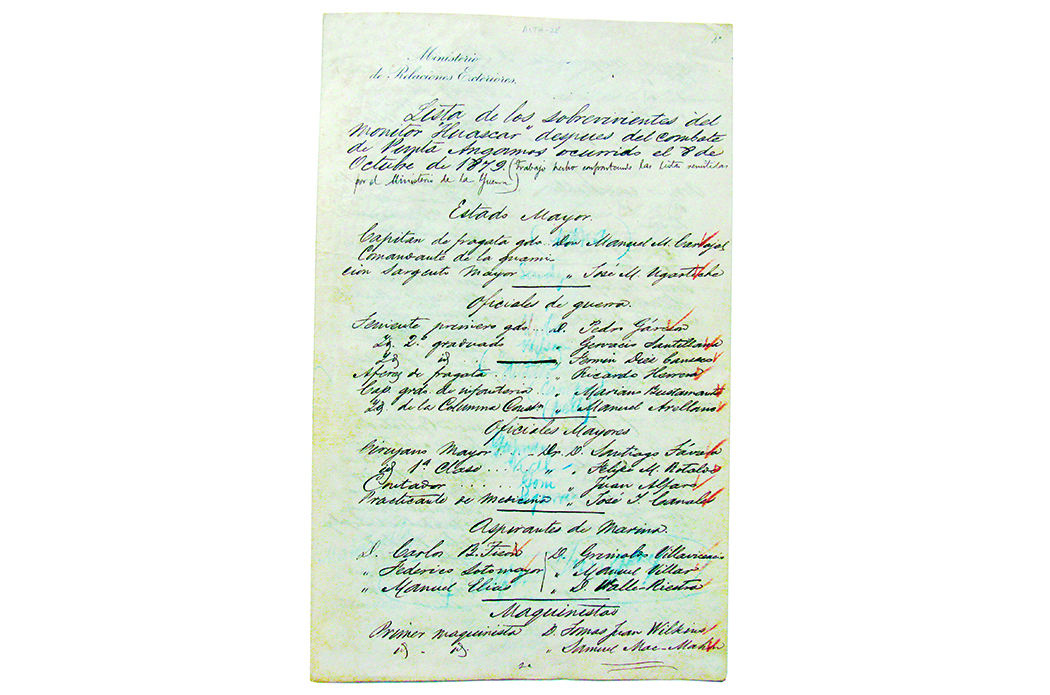 Ministerio
de Relaciones Exteriores.
Lista de los sobrevivientes del
Monitor "Huascar" despues del combate
de Punta Angamos ocurrido el 8 de
Octubre de 1879. (Trabajo hecho confrontando las lista remitidas
por el Ministerio de la Guerra)
Estado Mayor.
Capitan de fragata gdo. Don Manuel M. Carvajal
Comandante de la guarni-
cion Sargento Mayor " José M. Ugarteche
Oficiales de guerra.
Teniente primero gdo... D. Pedro Gárezon
Id. 2º graduado " Gervacio Santillana
Id id " Fermin Diez Canseco
Alferez de fragata . . . . . . " Ricardo Herrera
Cap. grdo. de infanteria . . " Mariano Bustamante
Id. de la Columna Constn " Manuel Arellano
Oficiales Mayores
Cirujano Mayor . . . . Dr. D. Santiago Távara
id 1ª Clase . . . . " " Felipe M. Rotalde
Contador . . . . . . . . " Juan Alfaro
Practicante de Medicina " José I. Canales
Aspirantes de Marina.
D. Carlos B. Tison D. Grimaldo Villavicencio
" Federico Sotomayor " Manuel Villar
" Manuel Elias " D. Valle-Riestra
Maquinistas
Primer maquinista D. Tomas Juan Wilkins
id - id " Samuel Mac-Mahon